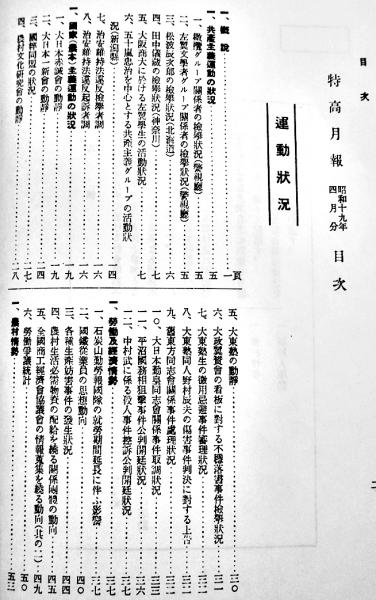 目次
特高月報 昭和十九年四月分 目次
運動狀況
一、概說……一頁
一、共產主義運動の狀況
一、グループ關係者の檢擧狀況(警視廳)……五
二、左翼文學者關係者の檢擧狀況(警視廳)……五
三、松波辰次郎の檢擧狀況(北海道)……五
四、田中儀藏の檢擧狀況(神奈川)
五、大阪商大に於ける左翼學生の活動狀況……七
六、五十嵐忠治を中心とする共產主義グループの活動狀況(新潟縣)……四
七、治安維持法違反檢擧者調……六
八、治安維持法違反起訴者調……六
一、國家(農本)主義運動の狀況……九
一、大日本赤誠會の動靜……九
二、大日本一新會の動靜
三、國粹同盟の狀況……七
四、農村文化硏究會の動靜……八
五、大東塾の動靜……三〇
六、大政翼贊會の看板に對する不穩落書事件檢擧狀況……三一
七、大東塾生の徵用忌避事件審理狀況
八、大東塾同人野村辰夫の傷害事件判決に對する上告
九、舊東方同志會關係事件處理狀況
一〇、大日本勤皇同志會關係事件取調狀況
一一、平沼國務相狙擊事件公判開廷狀況……三六
一二、中村武に係る殺人事件控訴公判開廷狀況……三七
一、勞働及經濟情勢
一、石炭山勤勞報國隊の就勞期間延長に伴ふ影響……三七
二、國鐵從業員の思想動向……四〇
三、各種生產妨害事件の發生狀況……四四
四、農村生活必需物資の配給を繞る關係團體の動向……四五
五、全國商工經濟會協議會の情報蒐集を繞る動向(其の一)……四九
六、勞働爭議統計……五〇
一、農村情勢……五三
二